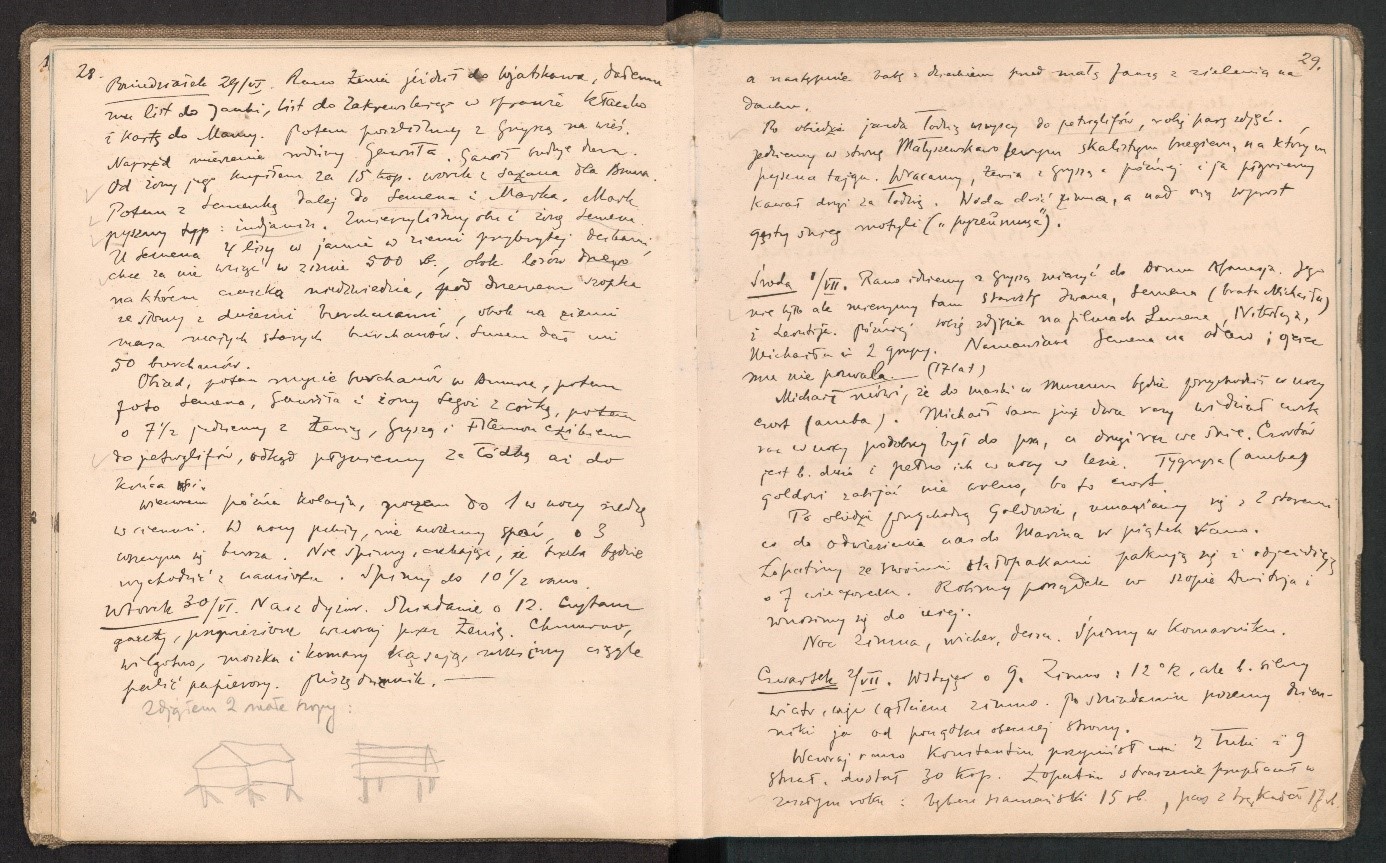 28.
Poniedziałek 29/VI. Rano Żenia jeździł do Wiatskowa, dałem
mu list do Janki, list do Zakrzewskiego w sprawie
i kartę do Mamy. Potem poszliśmy z Gryszą na wieś.
Naprzód mierzenie rodziny Gawriła. Gawrił buduje dom.
Od żony jego kupiłem za 15 kop. worek z sazana dla Bruna.
Potem z Semenką dalej do Semena i Marka. Mark
pyszny typ: indjanin. Zmierzyliśmy obu i żonę Semena.
U Semena 4 lisy w jamie w ziemi przykrytej deskami,
chce za nie wziąć w zimie 500 rb., obok
na którem czaszka niedźwiedzia, pod drzewem szopka
ze słomy z dużemi burchanami, obok na ziemi
masa małych starych burchanów. Semen dał mi
50 burchanów.
Obiad, potem mycie burchanów w Amurze, potem
foto Semena, Gawriła i żony tegoż z córką, potem
o 7 1/2 jedziemy z Żenią, Gryszą i Filemonczikiem
do petroglifów, odkąd płyniemy za łódką aż do
końca wsi.
Wieczorem późna kolacja, poczem do 1 w nocy siedzę
w ciemni. W nocy pchły, nie możemy spać, o 3
wszczyna się burza. Nie śpimy, czekając, że trzeba będzie
wychodzić z namiotu. Śpimy do 10 1/2 rano.
Wtorek 30/VI. Nasz dyżur. Śniadanie o 12. Czytam
gazety, przywiezione wczoraj przez Żenię. Chmurno,
wilgotno, moszka i komary kąsają, musimy ciągle
palić papierosy. Piszę dziennik. —
Zdjąłem 2 małe szopy:
29.
a następnie babę z dzieckiem przed małą fanzą z zielenią na
dachu.
Po obiedzie jazda łodzią wszyscy do petroglifów, robię parę zdjęć.
Jedziemy w stronę Małyszewskawo lewym skalistym brzegiem, na którym
pyszna tajga. Wracamy, Żenia z Gryszą a później i ja płyniemy
kawał drogi za łodzią. Woda dość zimna, a nad nią wprost
gęsty śnieg motyli
Środa 1/VII. Rano idziemy z Gryszą mierzyć do domu Afanasja. Jego
nie było ale mierzymy tam starostę Iwana, Semena (brata Michaiła)
i Leontija. Później robię zdjęcia na filmach Semena, Nikołaja,
Michaiła i 2 grupy. Namawiam Semena na odlew, ojciec
mu nie pozwala (17 lat)
Michaił mówi, że do maski w muzeum będzie przychodził w nocy
czort (amba). Michaił sam już dwa razy widział czorta
raz w nocy podobny był do psa, a drugi raz we dnie. Czortów
jest b. dużo i pełno ich w nocy w lesie. Tygrysa (amba)
goldowi zabijać nie wolno, bo to czort.
Po obiedzie przychodzą Goldowie, umawiamy się z 2 starszymi
co do odwiezienia nas do Marina w piątek rano.
Łopatiny ze swoimi chłopakami pakują się i odjeżdżają
o 7 wieczorem. Robimy porządek w szopie Dmitrja i
wnosimy się do niej.
Noc zimna, wicher, deszcz. Śpimy w komarniku.
Czwartek 2/VII. Wstaję o 9. Zimno: 12°R, ale b. silny
wiatr, więc zimno. Po śniadaniu piszemy dzien-
niki ja od początku obecnej strony.
Wczoraj rano Konstantin przyniósł mi 2 łuki i 9
strzał, dostał 30 kop. Łopatin strasznie przepłacał w
zeszłym roku: bęben szamański 15 rb., pas z brząkadłami 17 rb.